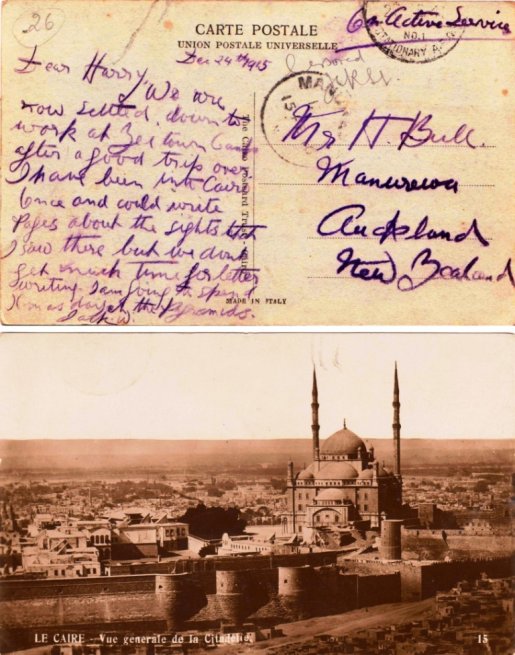 26
CARTE POSTALE
UNION POSTALE UNIVERSELLE
On Active Service
NO.1
STATIONARY
Dec 24th 1915
Dear Harry, We are
now settled down to
work at Zeitown Camp
after a good trip over.
I have been into Cairo
once and could write
pages about the sights that
I saw there but we dont
get much time for letter
writing. I am going to spend
Xmas day at the Pyramids.
Jack W.
Mr H. Bull.
Manurewa
Auckland
New Zealand
MADE IN ITALY
LE CAIRE - Vue generale de la Citadelle
15